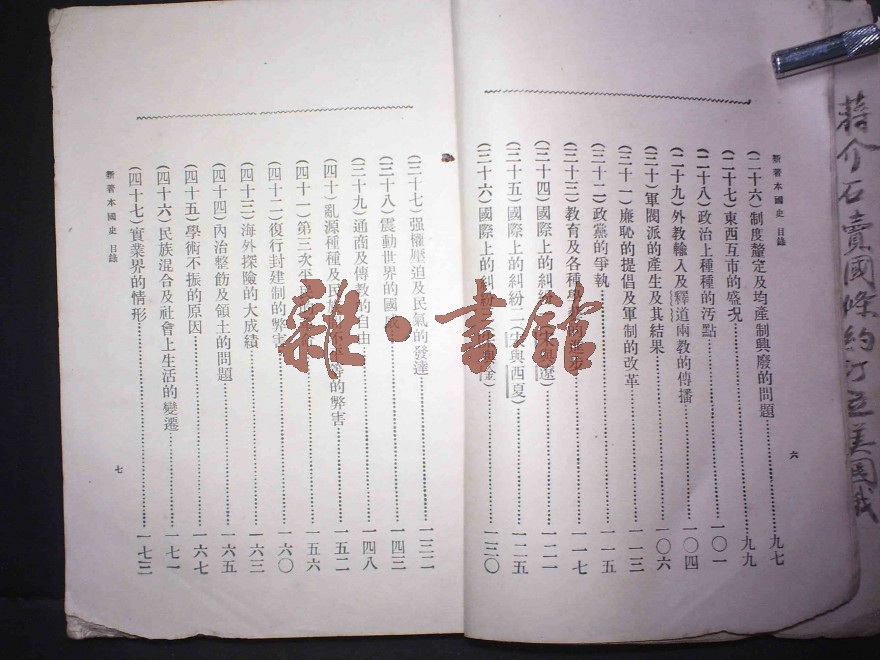 蔣介石賣國條約訂立美國
新著本國史 目錄
六
(二十六)制度釐定及均產制興廢的問題……九七
(二十七)東西互市的盛況……九九
(二十八)政治上種種的汚點……一〇一
(二十九)外教輸入及釋道兩教的傳播……一〇四
(三十)軍閥派的產生及其結果……一〇六
(三十一)廉恥的提倡及軍制的改革……一一三
(三十二)政黨的爭執……一一五
(三十三)教育及各種……一一七
(三十四)國際上的糾紛一(宋與遼)……一二一
(三十五)國際上的糾紛二(宋與西夏)……一二五
(三十六)國際上的糾紛三(宋與金)……一三〇
(三十七)强權壓迫及民氣的發達……一三二
(三十八)震動世界的國威……一四三
(三十九)通商及傳教的自由……一四八
(四十)亂源種種及民族不平等的弊害……一五二
(四十一)第三次平民……一五六
(四十二)復行封建制的弊害……一六〇
(四十三)海外探險的大成績……一六三
(四十四)內治整飭及領土的問題……一六五
(四十五)學術不振的原因……一六七
(四十六)民族混合及社會上生活的變遷……一七一
(四十七)實業界的情形……一七三
新著本國史 目錄
七
雜·書館